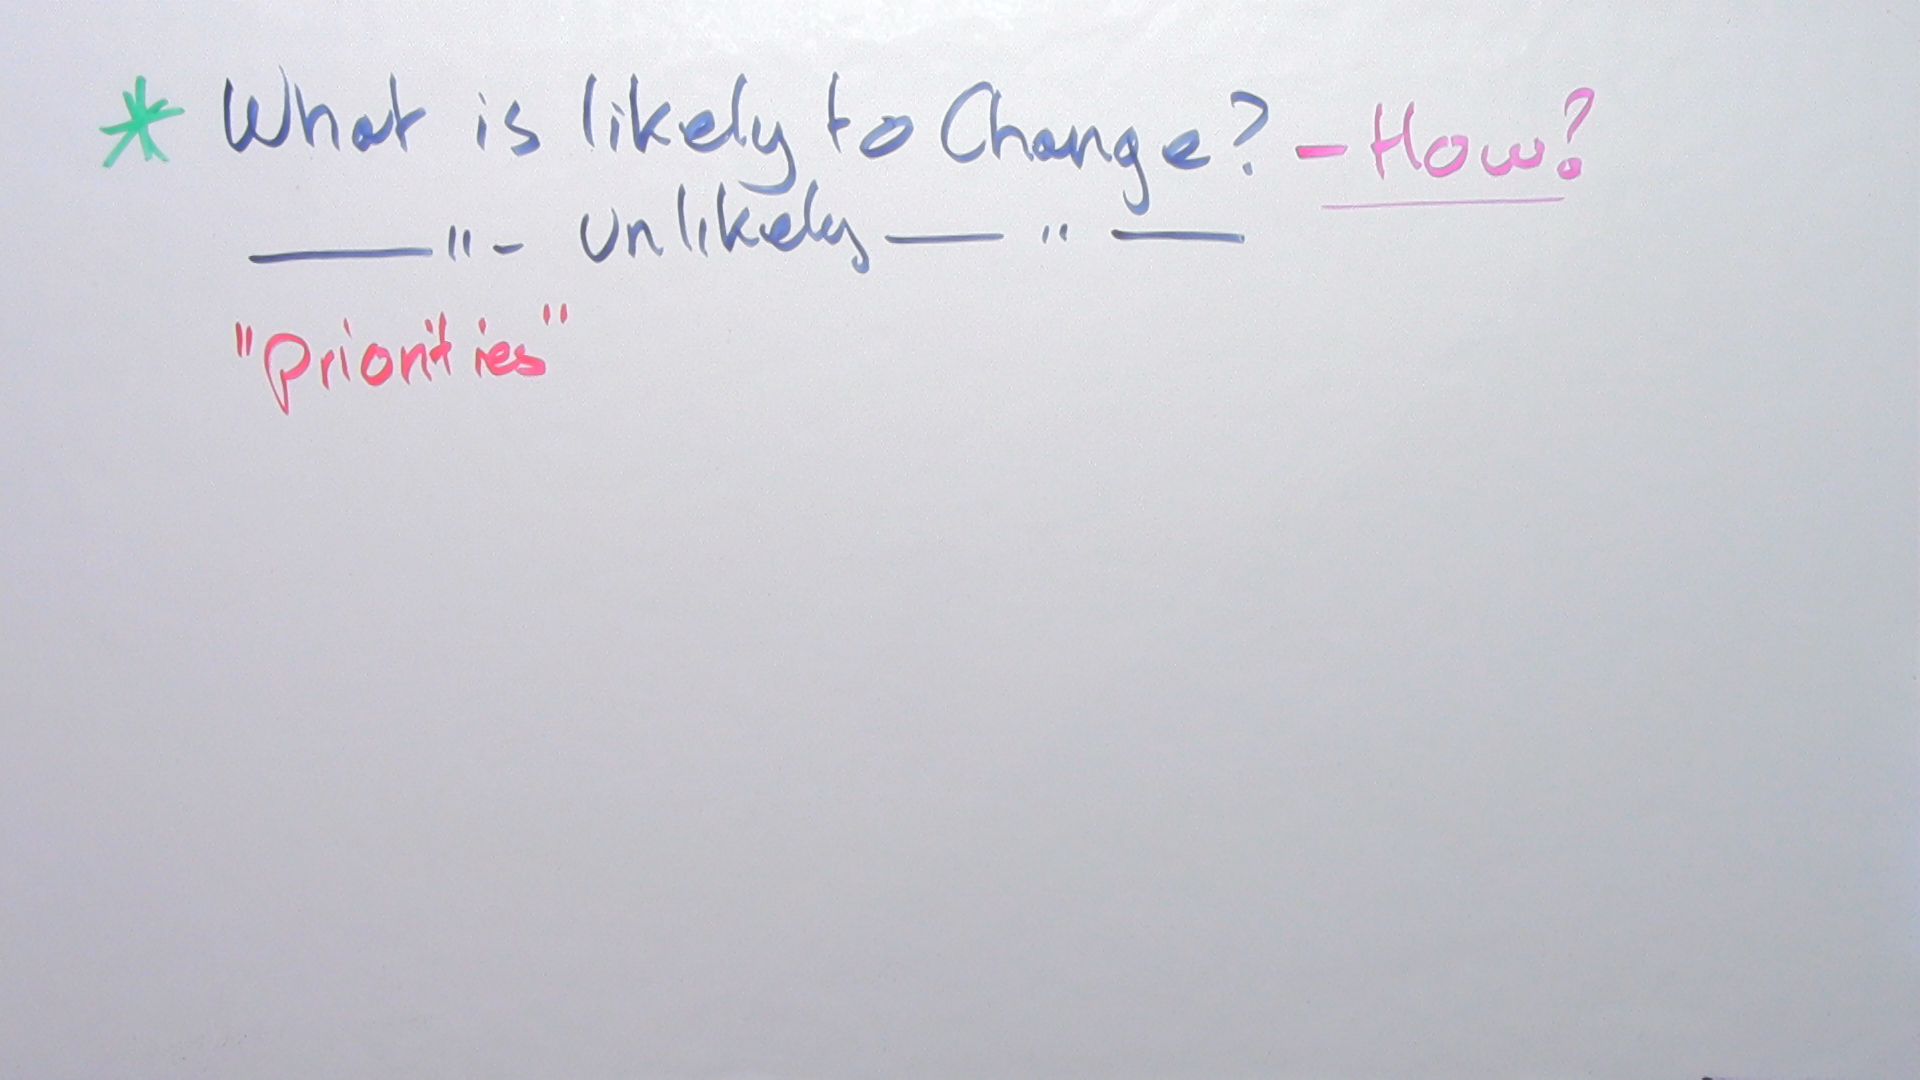 * What is likely to Change? - How?
—— " - unlikely —— " ——
"Priorities"